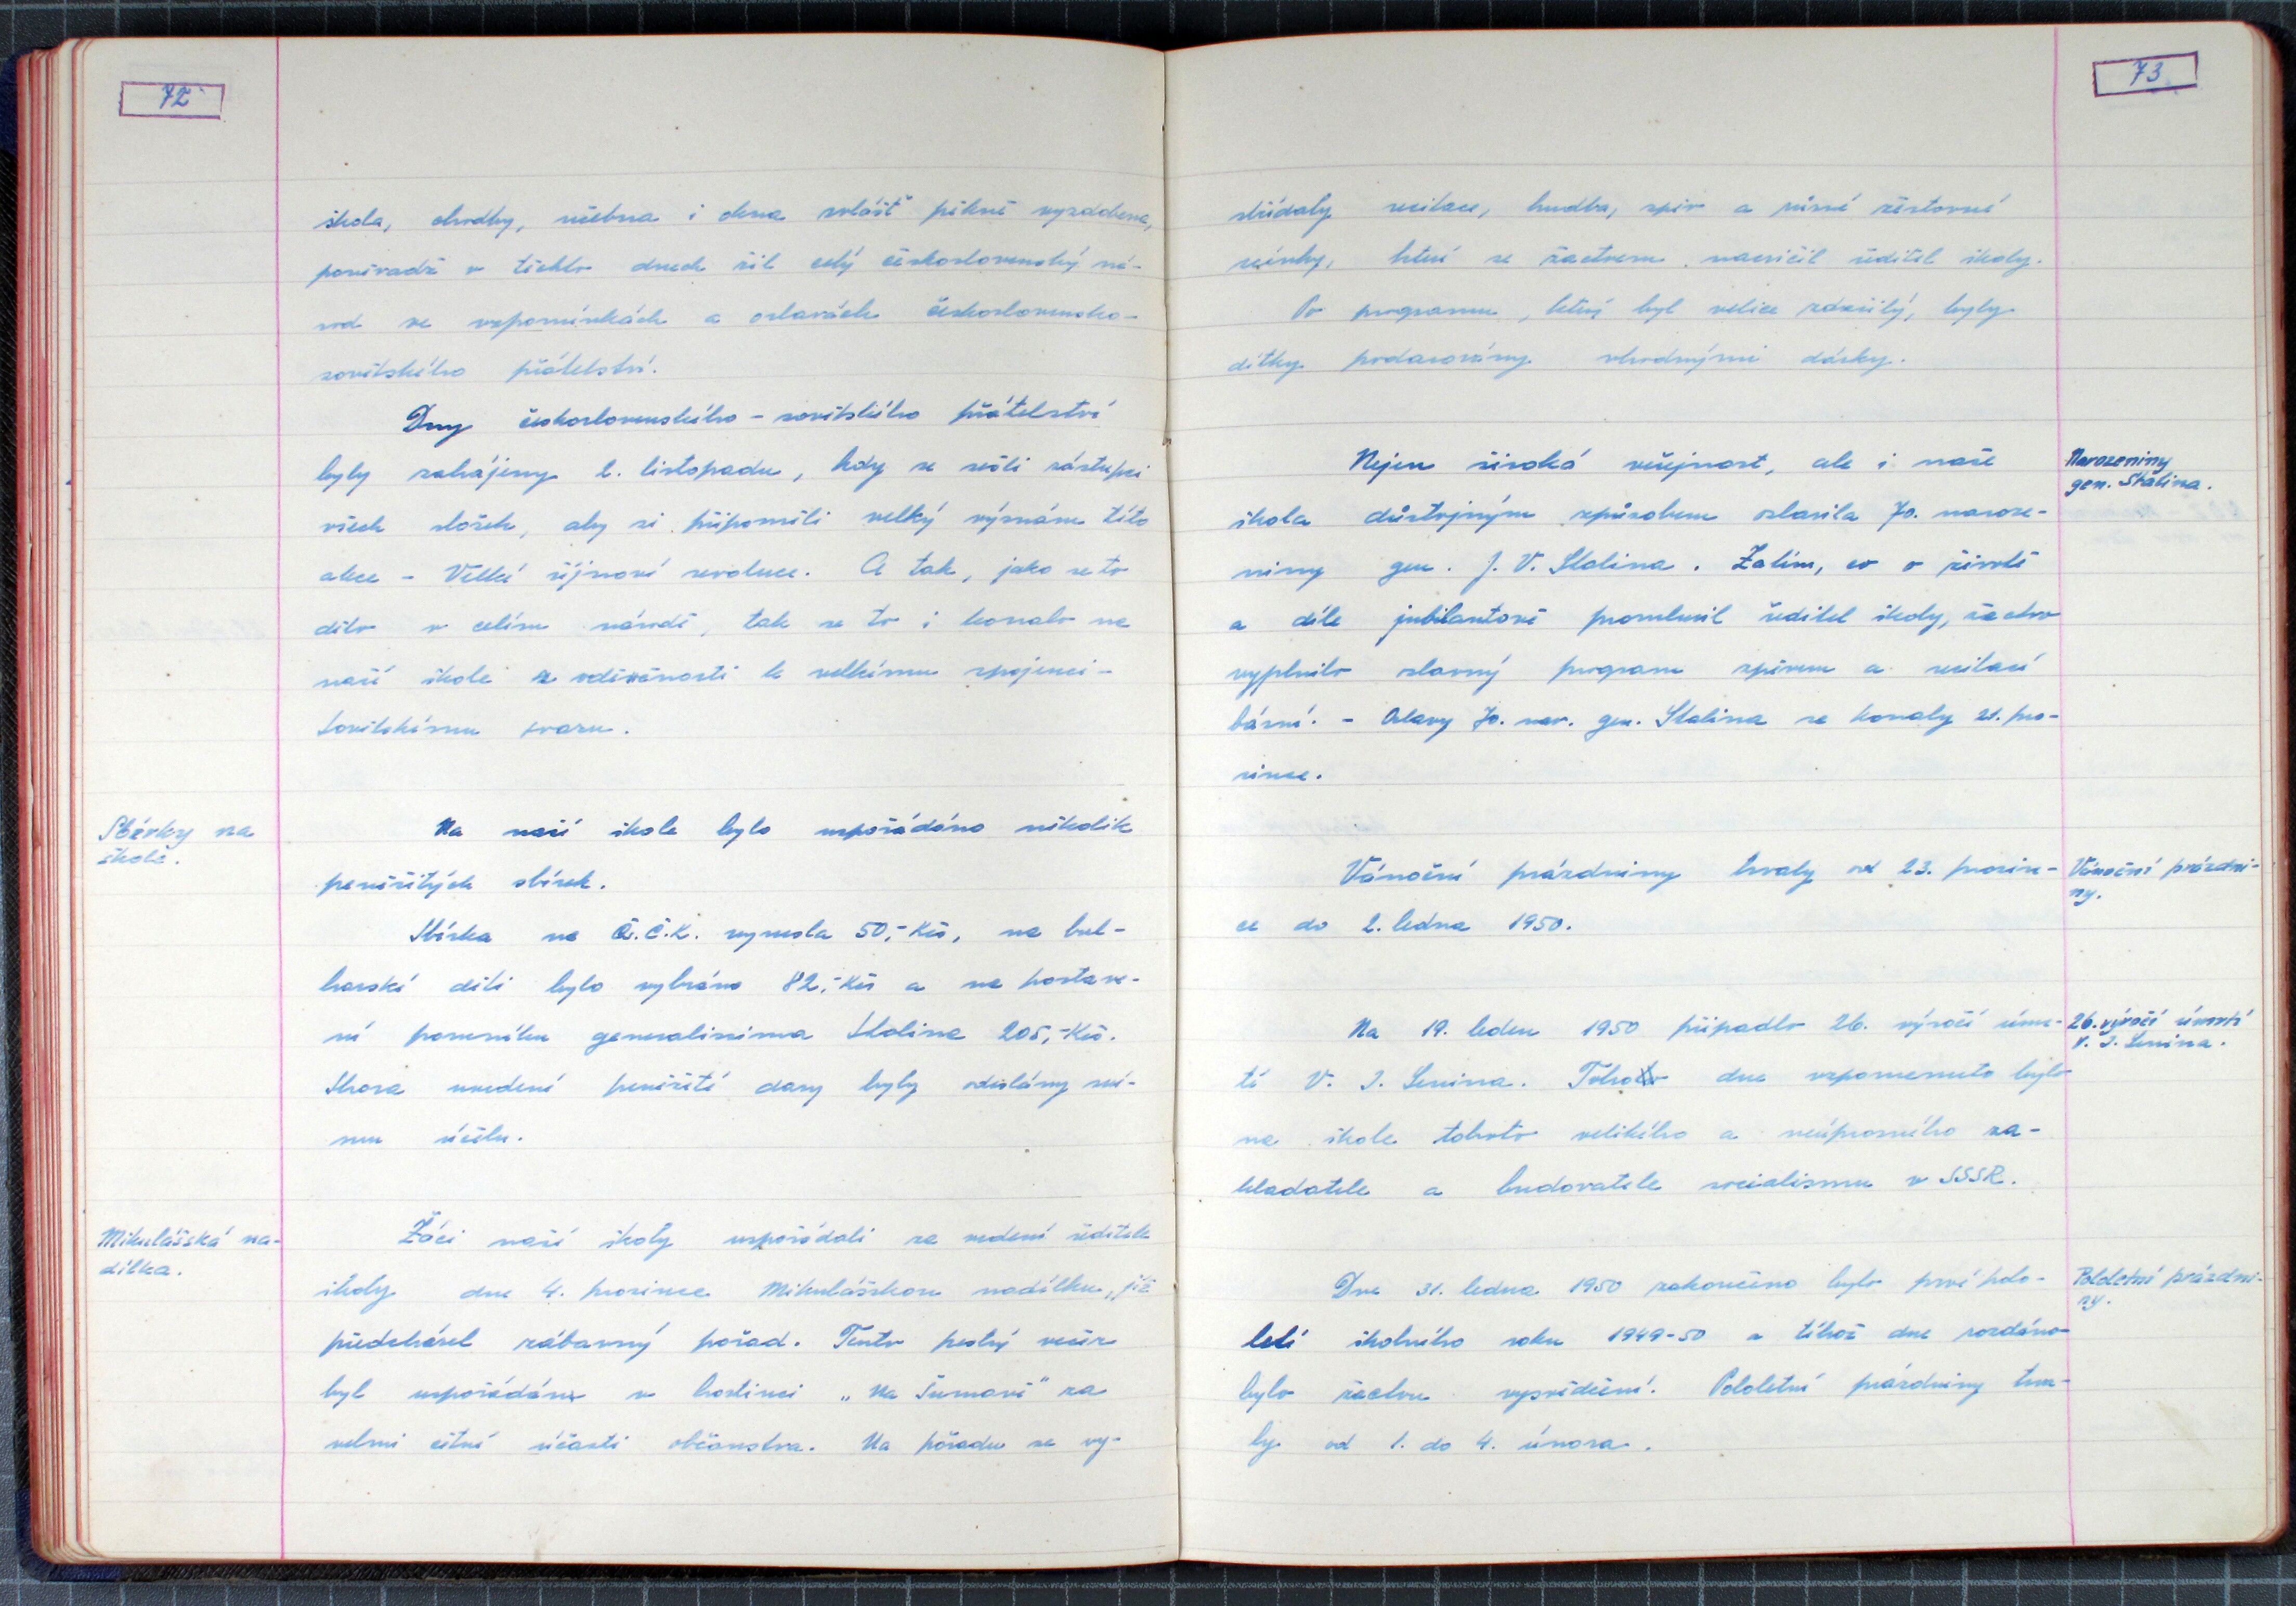 72
škola, chodby, učebna i okna zvlášť pěkně vyzdobena,
poněvadž v těchto dnech žil celý československý ná-
rod ve vzpomínkách a oslavách československo-
sovětského přátelství.
Dny československého - sovětského přátelství
byly zahájeny 2. listopadu, kdy se sešli zástupci
všech složek, aby si připomněli velký význam této
akce - Velké říjnové revoluce. A tak, jako se to
dělo v celém národě, tak se to i konalo na
naší škole z vděčnosti k velkému spojenci -
Sovětskému svazu.
Sbírky na
škole.
Na naší škole bylo uspořádáno několik
peněžitých sbírek.
Sbírka na Č.Č.K. vynesla 50,- Kčs, na bul-
harské děti bylo vybráno 82,- Kčs a na postave-
ní pomníku generalissima Stalina 205,- Kčs.
Shora uvedené peněžité dary byly odeslány své-
mu účelu.
Mikulášská na-
dílka.
Žáci naší školy uspořádali za vedení ředitele
školy dne 4. prosince Mikulášskou nadílku, jíž
předcházel zábavný pořad. Tento pestrý večer
byl uspořádán v hostinci „Na Šumavě" za
velmi četné účasti občanstva. Na pořadu se vy-
73
střídaly recitace, hudba, zpěv a různé žertovné
scénky, které se žactvem nacvičil ředitel školy.
Po programu, který byl velice zdařilý, byly
dítky podarovány vhodnými dárky.
Narozeniny
gen. Stalina.
Nejen široká veřejnost, ale i naše
škola důstojným způsobem oslavila 70. naroze-
niny gen. J. V. Stalina. Zatím, co o životě
a díle jubilantově promluvil ředitel školy, žactvo
vyplnilo slavný program zpěvem a recitací
básní. - Oslavy 70. nar. gen. Stalina se konaly 21. pro-
since.
Vánoční prázdni-
ny.
Vánoční prázdniny trvaly od 23. prosin-
ce do 2. ledna 1950.
26. výročí úmrtí
V. I. Lenina.
Na 19. leden 1950 připadlo 26. výročí úmr-
tí V. I. Lenina. Toho dne vzpomenuto bylo
na škole tohoto velikého a neúprosného za-
kladatele a budovatele socialismu v SSSR.
Pololetní prázdni-
ny.
Dne 31. ledna 1950 zakončeno bylo prvé polo-
letí školního roku 1949-50 a téhož dne rozdáno
bylo žactvu vysvědčení. Pololetní prázdniny trva-
ly od 1. do 4. února.